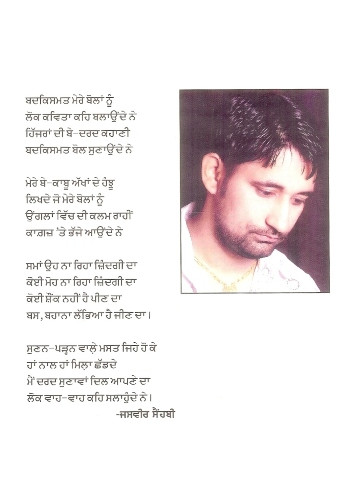 ਬਦਕਿਸਮਤ ਮੇਰੇ ਬੋਲਾਂ ਨੂੰ
ਲੋਕ ਕਵਿਤਾ ਕਹਿ ਬਲਾਉਂਦੇ ਨੇ
ਹਿੰਜਰਾਂ ਦੀ ਬੇ-ਦਰਦ ਕਹਾਣੀ
ਬਦਕਿਸਮਤ ਬੋਲ ਸੁਣਾਉਂਦੇ ਨੇ
ਮੇਰੇ ਬੇ-ਕਾਬੂ ਅੱਖਾਂ ਦੇ ਹੰਝੂ
ਲਿਖਦੇ ਜੋ ਮੇਰੇ ਬੋਲਾਂ ਨੂੰ
ਉਂਗਲਾਂ ਵਿੱਚ ਦੀ ਕਲਮ ਰਾਹੀਂ
ਕਾਗਜ਼ 'ਤੇ ਭੱਜੇ ਆਉਂਦੇ ਨੇ
ਸਮਾਂ ਉਹ ਨਾ ਰਿਹਾ ਜ਼ਿੰਦਗੀ ਦਾ
ਕੋਈ ਮੋਹ ਨਾ ਰਿਹਾ ਜ਼ਿੰਦਗੀ ਦਾ
ਕੋਈ ਸ਼ੌਂਕ ਨਹੀਂ ਹੈ ਪੀਣ ਦਾ
ਬਸ, ਬਹਾਨਾ ਲੱਭਿਆ ਹੈ ਜੀਣ ਦਾ।
ਸੁਣਨ-ਪੜ੍ਹਨ ਵਾਲੇ ਮਸਤ ਜਿਹੇ ਹੋ ਕੇ
ਹਾਂ ਨਾਲ ਹਾਂ ਮਿਲਾ ਛੱਡਦੇ
ਮੈਂ ਦਰਦ ਸੁਣਾਵਾਂ ਦਿਲ ਆਪਣੇ ਦਾ
ਲੋਕ ਵਾਹ-ਵਾਹ ਕਹਿ ਸਲਾਹੁੰਦੇ ਨੇ।
-ਜਸਵੀਰ ਸੈਂਹਬੀ